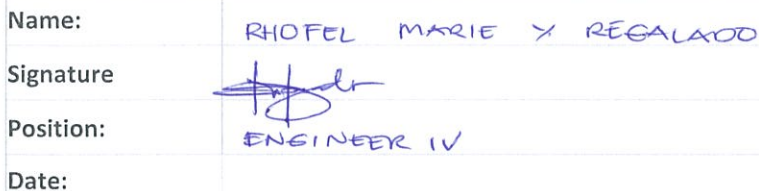 Name: RHOFEL MARIE Y REGALADO
Signature
Position: ENGINEER IV
Date: